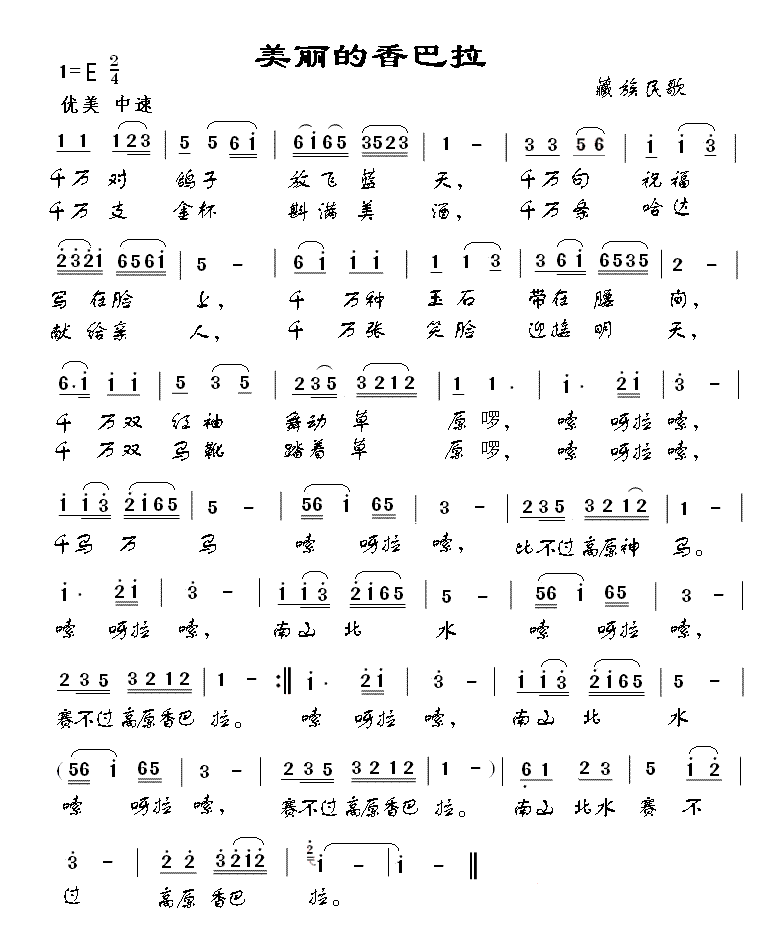 美丽的香巴拉
1=E 2/4
藏族民歌
优美 中速
1 1 1 2 3 | 5 5 6 i | 6 i 6 5 3 5 2 3 | 1 - | 3 3 5 6 | i i 3 |
千万对 鸽子 放飞蓝 天， 千万句 祝福
千万支 金杯 斟满美 酒， 千万条 哈达
2 3 2 i 6 5 6 i | 5 - | 6 i i i | 1 1 3 | 3 6 i 6 5 3 5 | 2 - |
写在脸 上， 千 万种 玉石 带在腰 间，
献给亲 人， 千 万张 笑脸 迎接明 天，
6 · i i i | 5 3 5 | 2 3 5 3 2 1 2 | 1 1 · | i · 2 i | 3 - |
千 万双 红袖 舞动草 原啰， 嗦 呀拉嗦，
千 万双 马靴 踏着草 原啰， 嗦 呀拉嗦，
i i 3 2 i 6 5 | 5 - | 5 6 i 6 5 | 3 - | 2 3 5 3 2 1 2 | 1 - |
千马万 马 嗦 呀拉嗦， 比不过高原神 马。
i · 2 i | 3 - | i i 3 2 i 6 5 | 5 - | 5 6 i 6 5 | 3 - |
嗦 呀拉嗦， 南山北 水 嗦 呀拉嗦，
2 3 5 3 2 1 2 | 1 - :‖ i · 2 i | 3 - | i i 3 2 i 6 5 | 5 - |
赛不过高原香巴 拉。 嗦 呀拉嗦， 南山北 水
( 5 6 i 6 5 | 3 - | 2 3 5 3 2 1 2 | 1 - ) | 6 1 2 3 | 5 i 2 |
嗦 呀拉嗦， 赛不过高原香巴 拉。 南山北水赛 不
3 - | 2 2 3 2 i 2 | i - | i - ‖
过 高原香巴 拉。